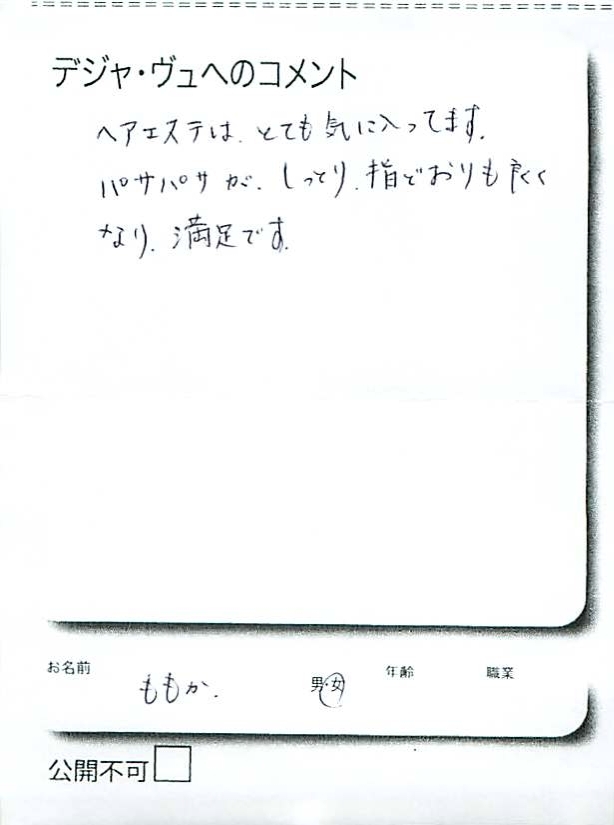 デジャ・ヴュへのコメント
ヘアエステは、とても気に入ってます。
パサパサが、しっとり、指どおりも良く
なり、満足です。
お名前
ももか.
男・女
年齢
職業
公開不可